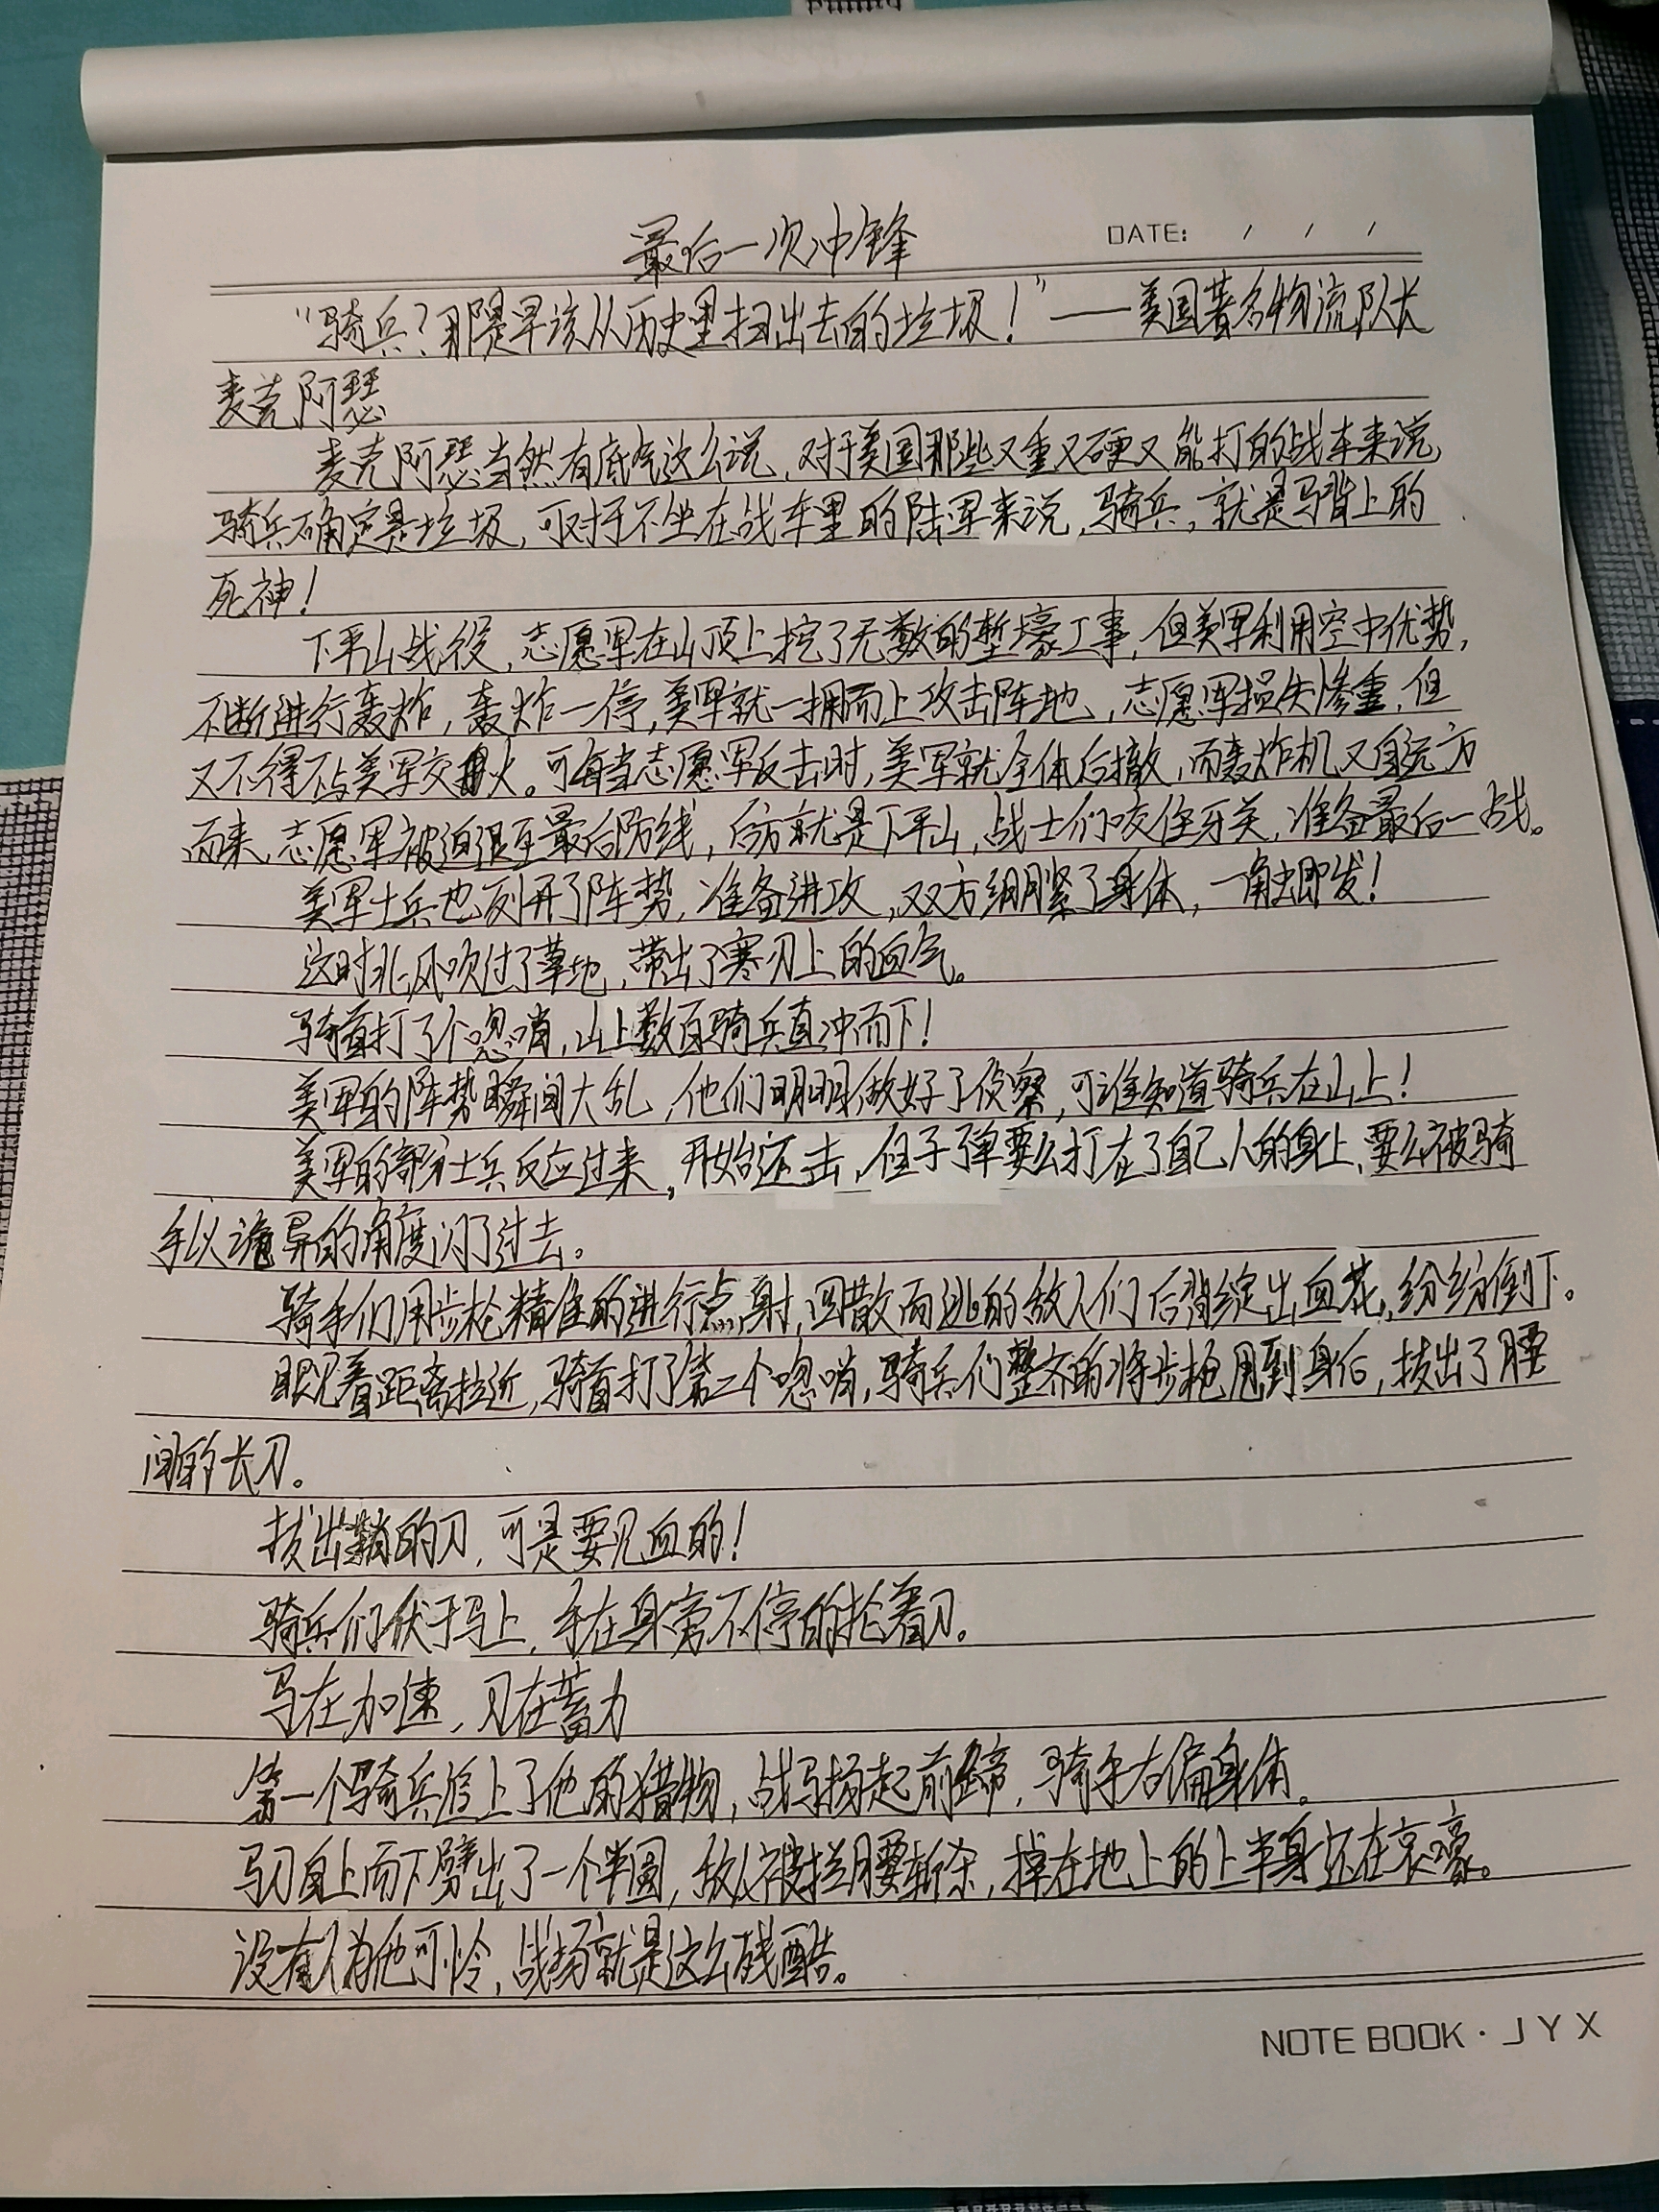 最后一次冲锋
DATE: / / /
“骑兵?那是早该从历史里扫出去的垃圾!”——美国著名物流队长
麦克阿瑟
麦克阿瑟当然有底气这么说,对于美国那些又重又硬又能打的战车来说
骑兵确定是垃圾,可对于不坐在战车里的陆军来说,骑兵,就是马背上的
死神!
下平山战役,志愿军在山顶上挖了无数的堑壕工事,但美军利用空中优势,
不断进行轰炸,轰炸一停,美军就一拥而上攻击阵地,志愿军损失惨重,但
又不得不与美军交火。可每当志愿军反击时,美军就全体后撤,而轰炸机又自远方
而来,志愿军被迫退至最后防线,后方就是下平山,战士们咬住牙关,准备最后一战。
美军士兵也列开了阵势,准备进攻,双方绷紧了身体,一触即发!
这时北风吹过了草地,带出了寒刃上的血气。
骑首打了个唿哨,山上数百骑兵直冲而下!
美军的阵势瞬间大乱,他们明明做好了侦察,可谁知道骑兵在山上!
美军的部分士兵反应过来,开始还击,但子弹要么打在了自己人的身上,要么被骑
手以诡异的角度闪了过去。
骑手们用步枪精准的进行点射,四散而逃的敌人们后背绽出血花,纷纷倒下。
眼见着距离拉近,骑首打了第二个唿哨,骑兵们整齐的将步枪甩到身后,拔出了腰
间的长刀。
拔出鞘的刀,可是要见血的!
骑兵们伏于马上,手在身旁不停的抡着刀。
马在加速,刀在蓄力
第一个骑兵追上了他的猎物,战马扬起前蹄,骑手右偏身体。
马刀自上而下劈出了一个半圆,敌人被拦腰斩杀,掉在地上的上半身还在哀嚎。
没有人为他可怜,战场就是这么残酷。
NOTE BOOK · JYX